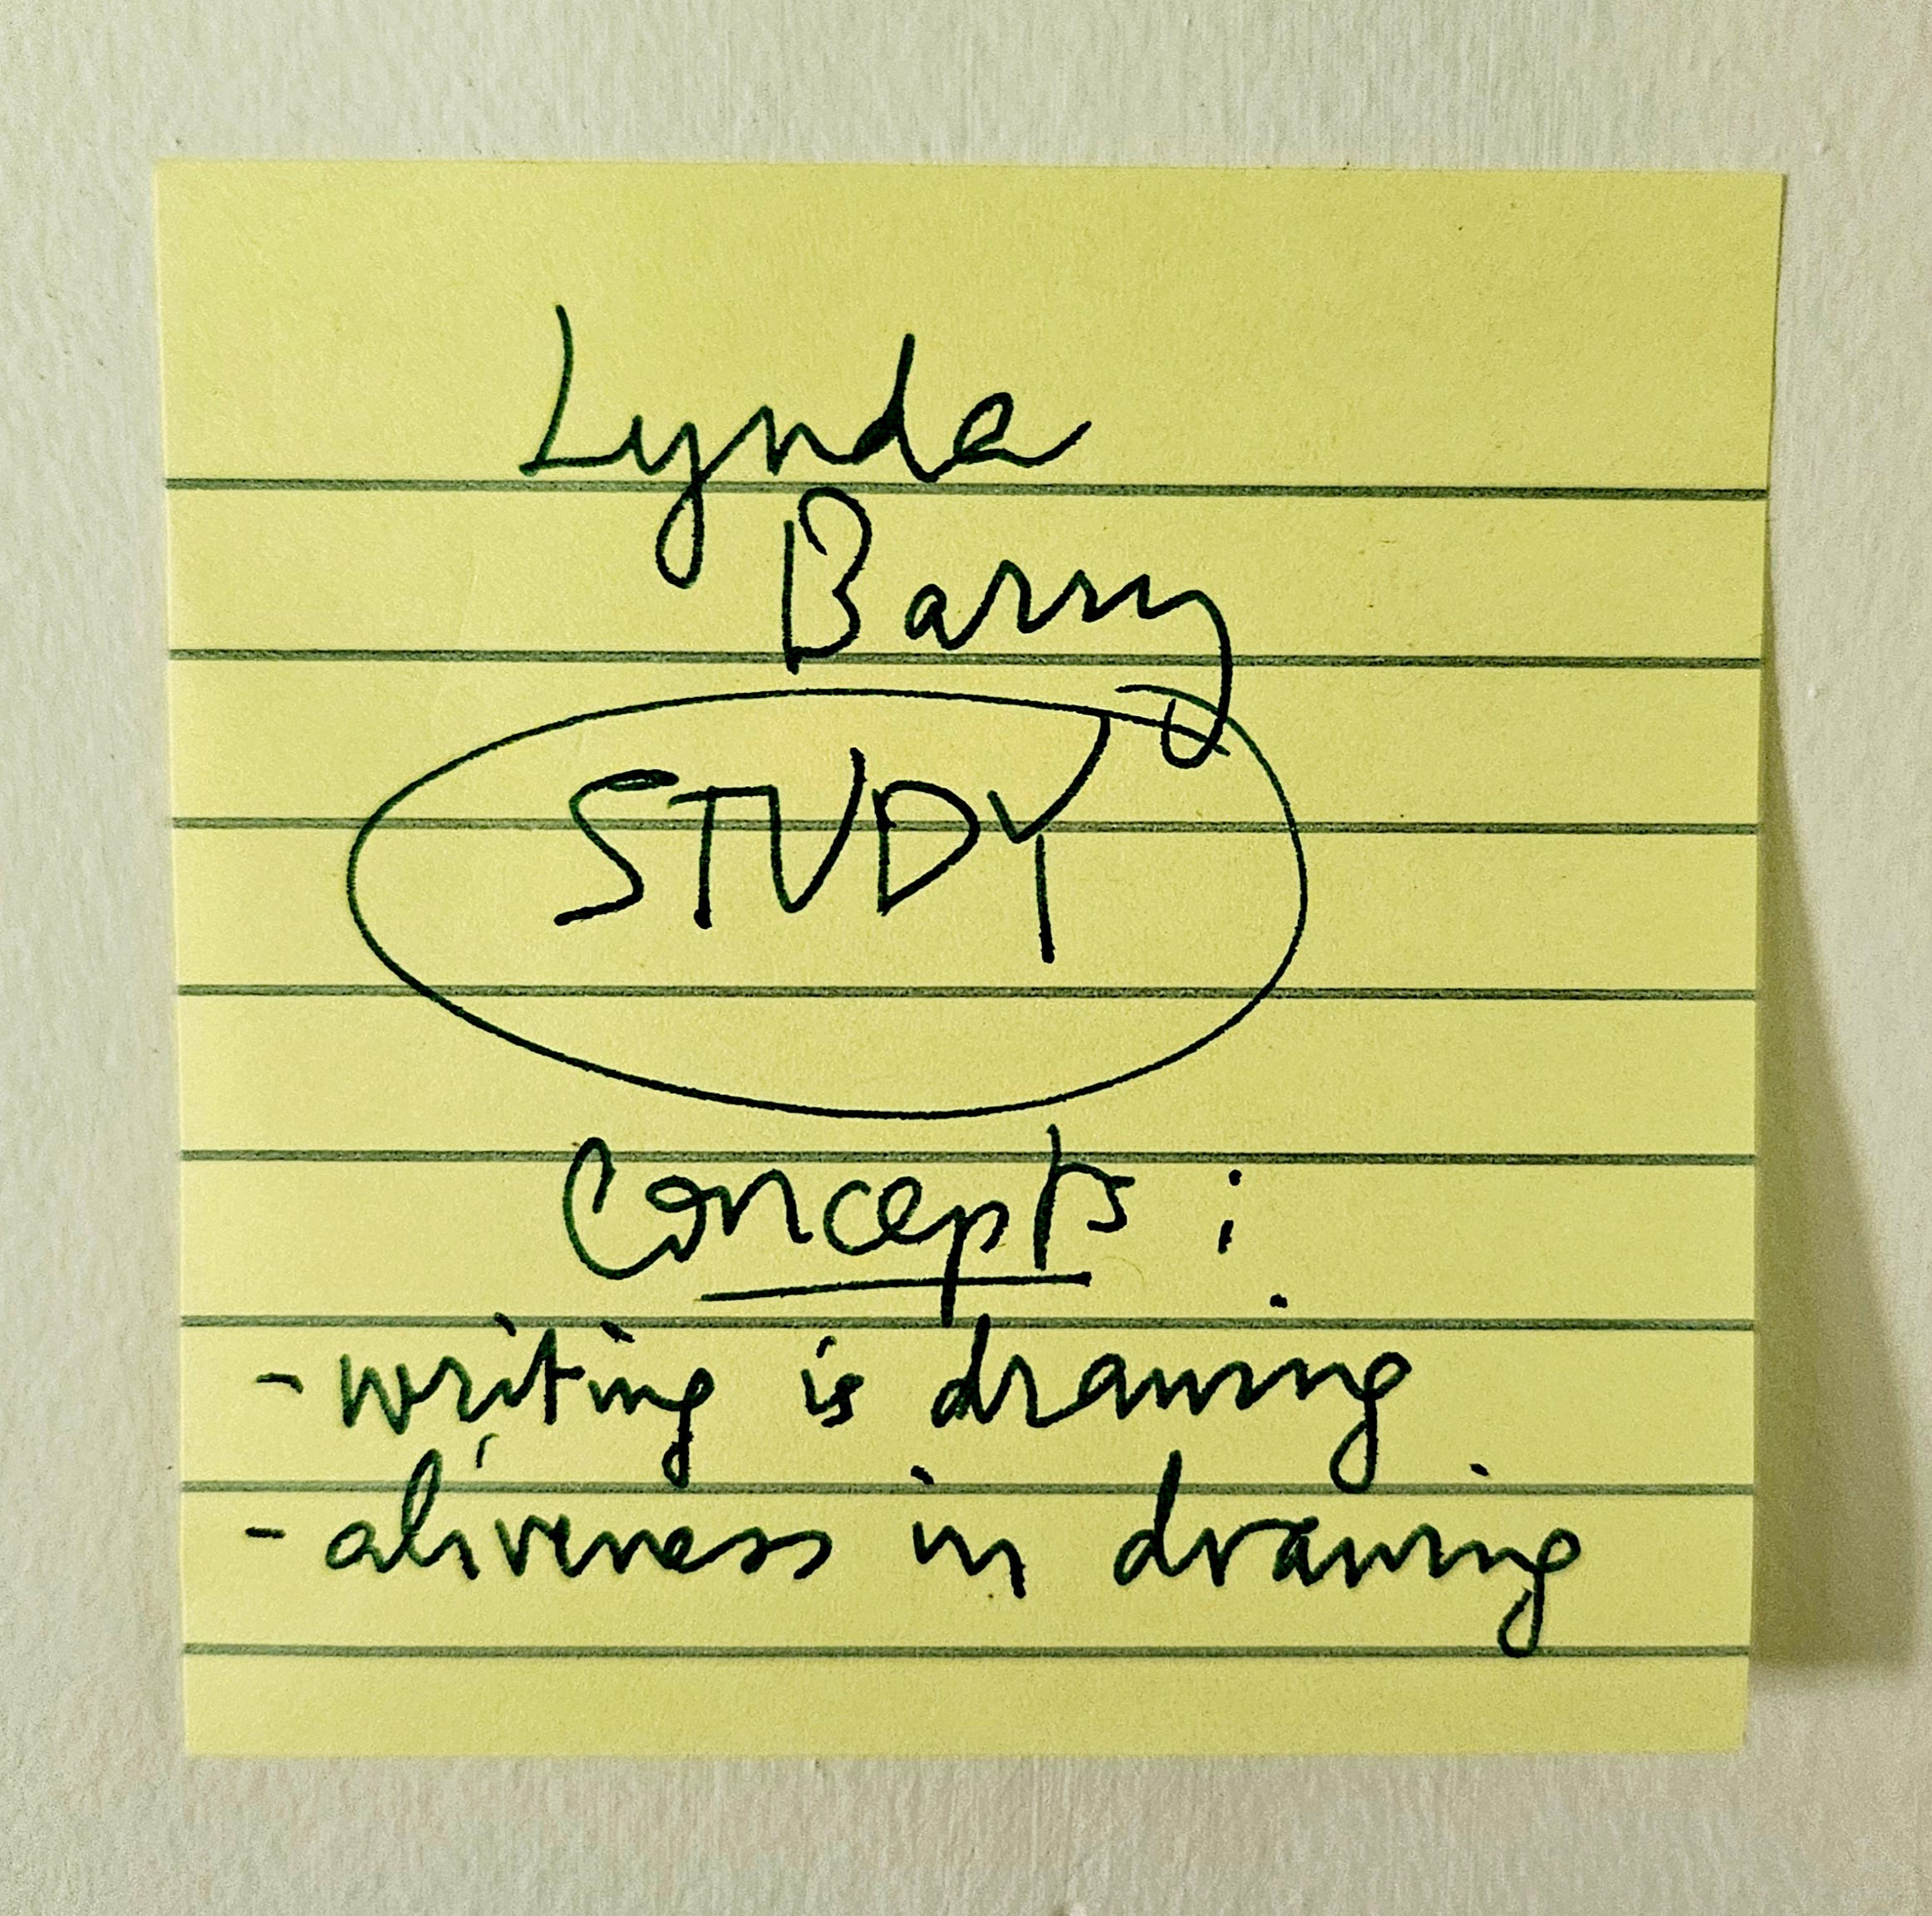 Lynda
Barry
STUDY
Concepts :
- writing is drawing
- aliveness in drawing